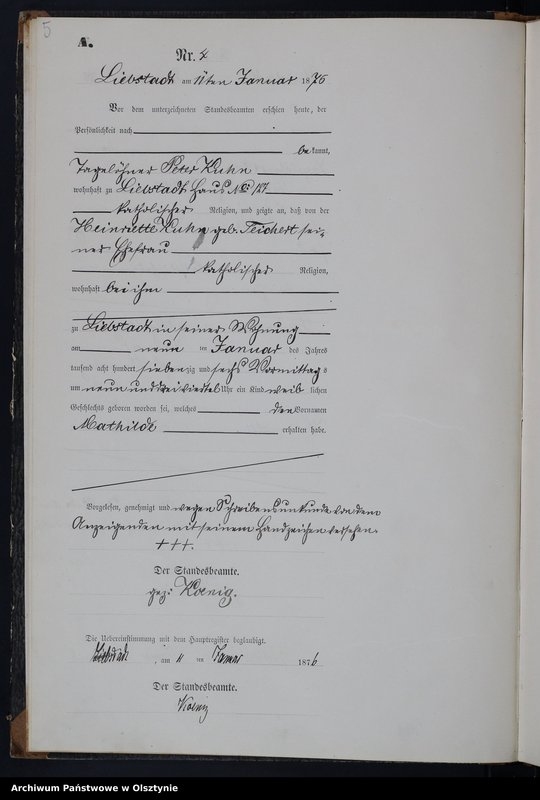 5
A.
Nr. 4
Liebstadt am 11ten Januar 1876
Vor dem unterzeichneten Standesbeamten erschien heute, der
Persönlichkeit nach
bekannt,
Tagelöhner Peter Kuhn
wohnhaft zu Liebstadt Haus No: 127
katholischer Religion, und zeigte an, daß von der
Heinriette Kuhn geb. Teichert sei-
ner Ehefrau
katholischer Religion,
wohnhaft bei ihm
zu Liebstadt in seiner Wohnung
am neun ten Januar des Jahres
tausend acht hundert siebenzig und sechs Vormittags
um neun und drei viertel Uhr ein Kind weiblichen
Geschlechts geboren worden sei, welches den Vornamen
Mathilde erhalten habe.
Vorgelesen, genehmigt und wegen Schreibensunkunde von dem
Anzeigenden mit seinem Handzeichen versehen.
+++.
Der Standesbeamte.
gez: Koenig.
Die Uebereinstimmung mit dem Hauptregister beglaubigt.
Liebstadt, am 11 ten Januar 1876
Der Standesbeamte.
Koenig
Archiwum Państwowe w Olsztynie